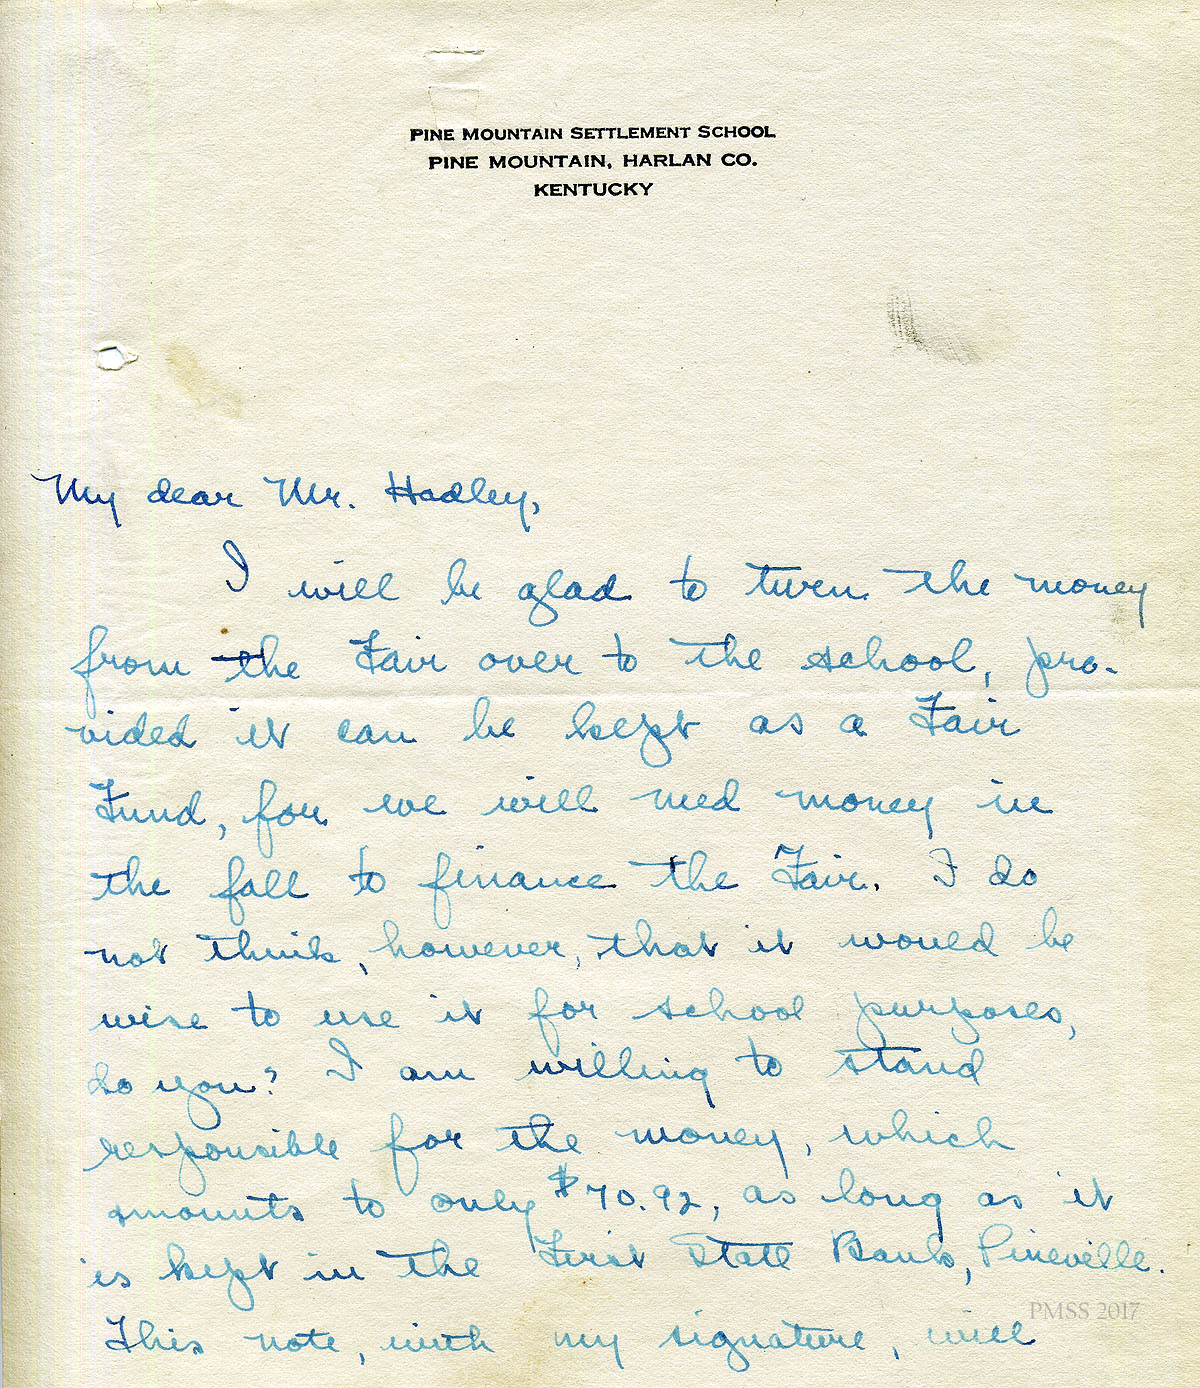 PINE MOUNTAIN SETTLEMENT SCHOOL
PINE MOUNTAIN, HARLAN CO.
KENTUCKY
My dear Mr. Hadley,
I will be glad to turn the money
from the Fair over to the school, pro-
vided it can be kept as a Fair
Fund, for we will need money in
the fall to finance the Fair. I do
not think, however, that it would be
wise to use it for school purposes,
do you? I am willing to stand
responsible for the money, which
amounts to only $70.92, as long as it
is kept in the First State Bank, Pineville.
This note, with my signature, will
PMSS 2017